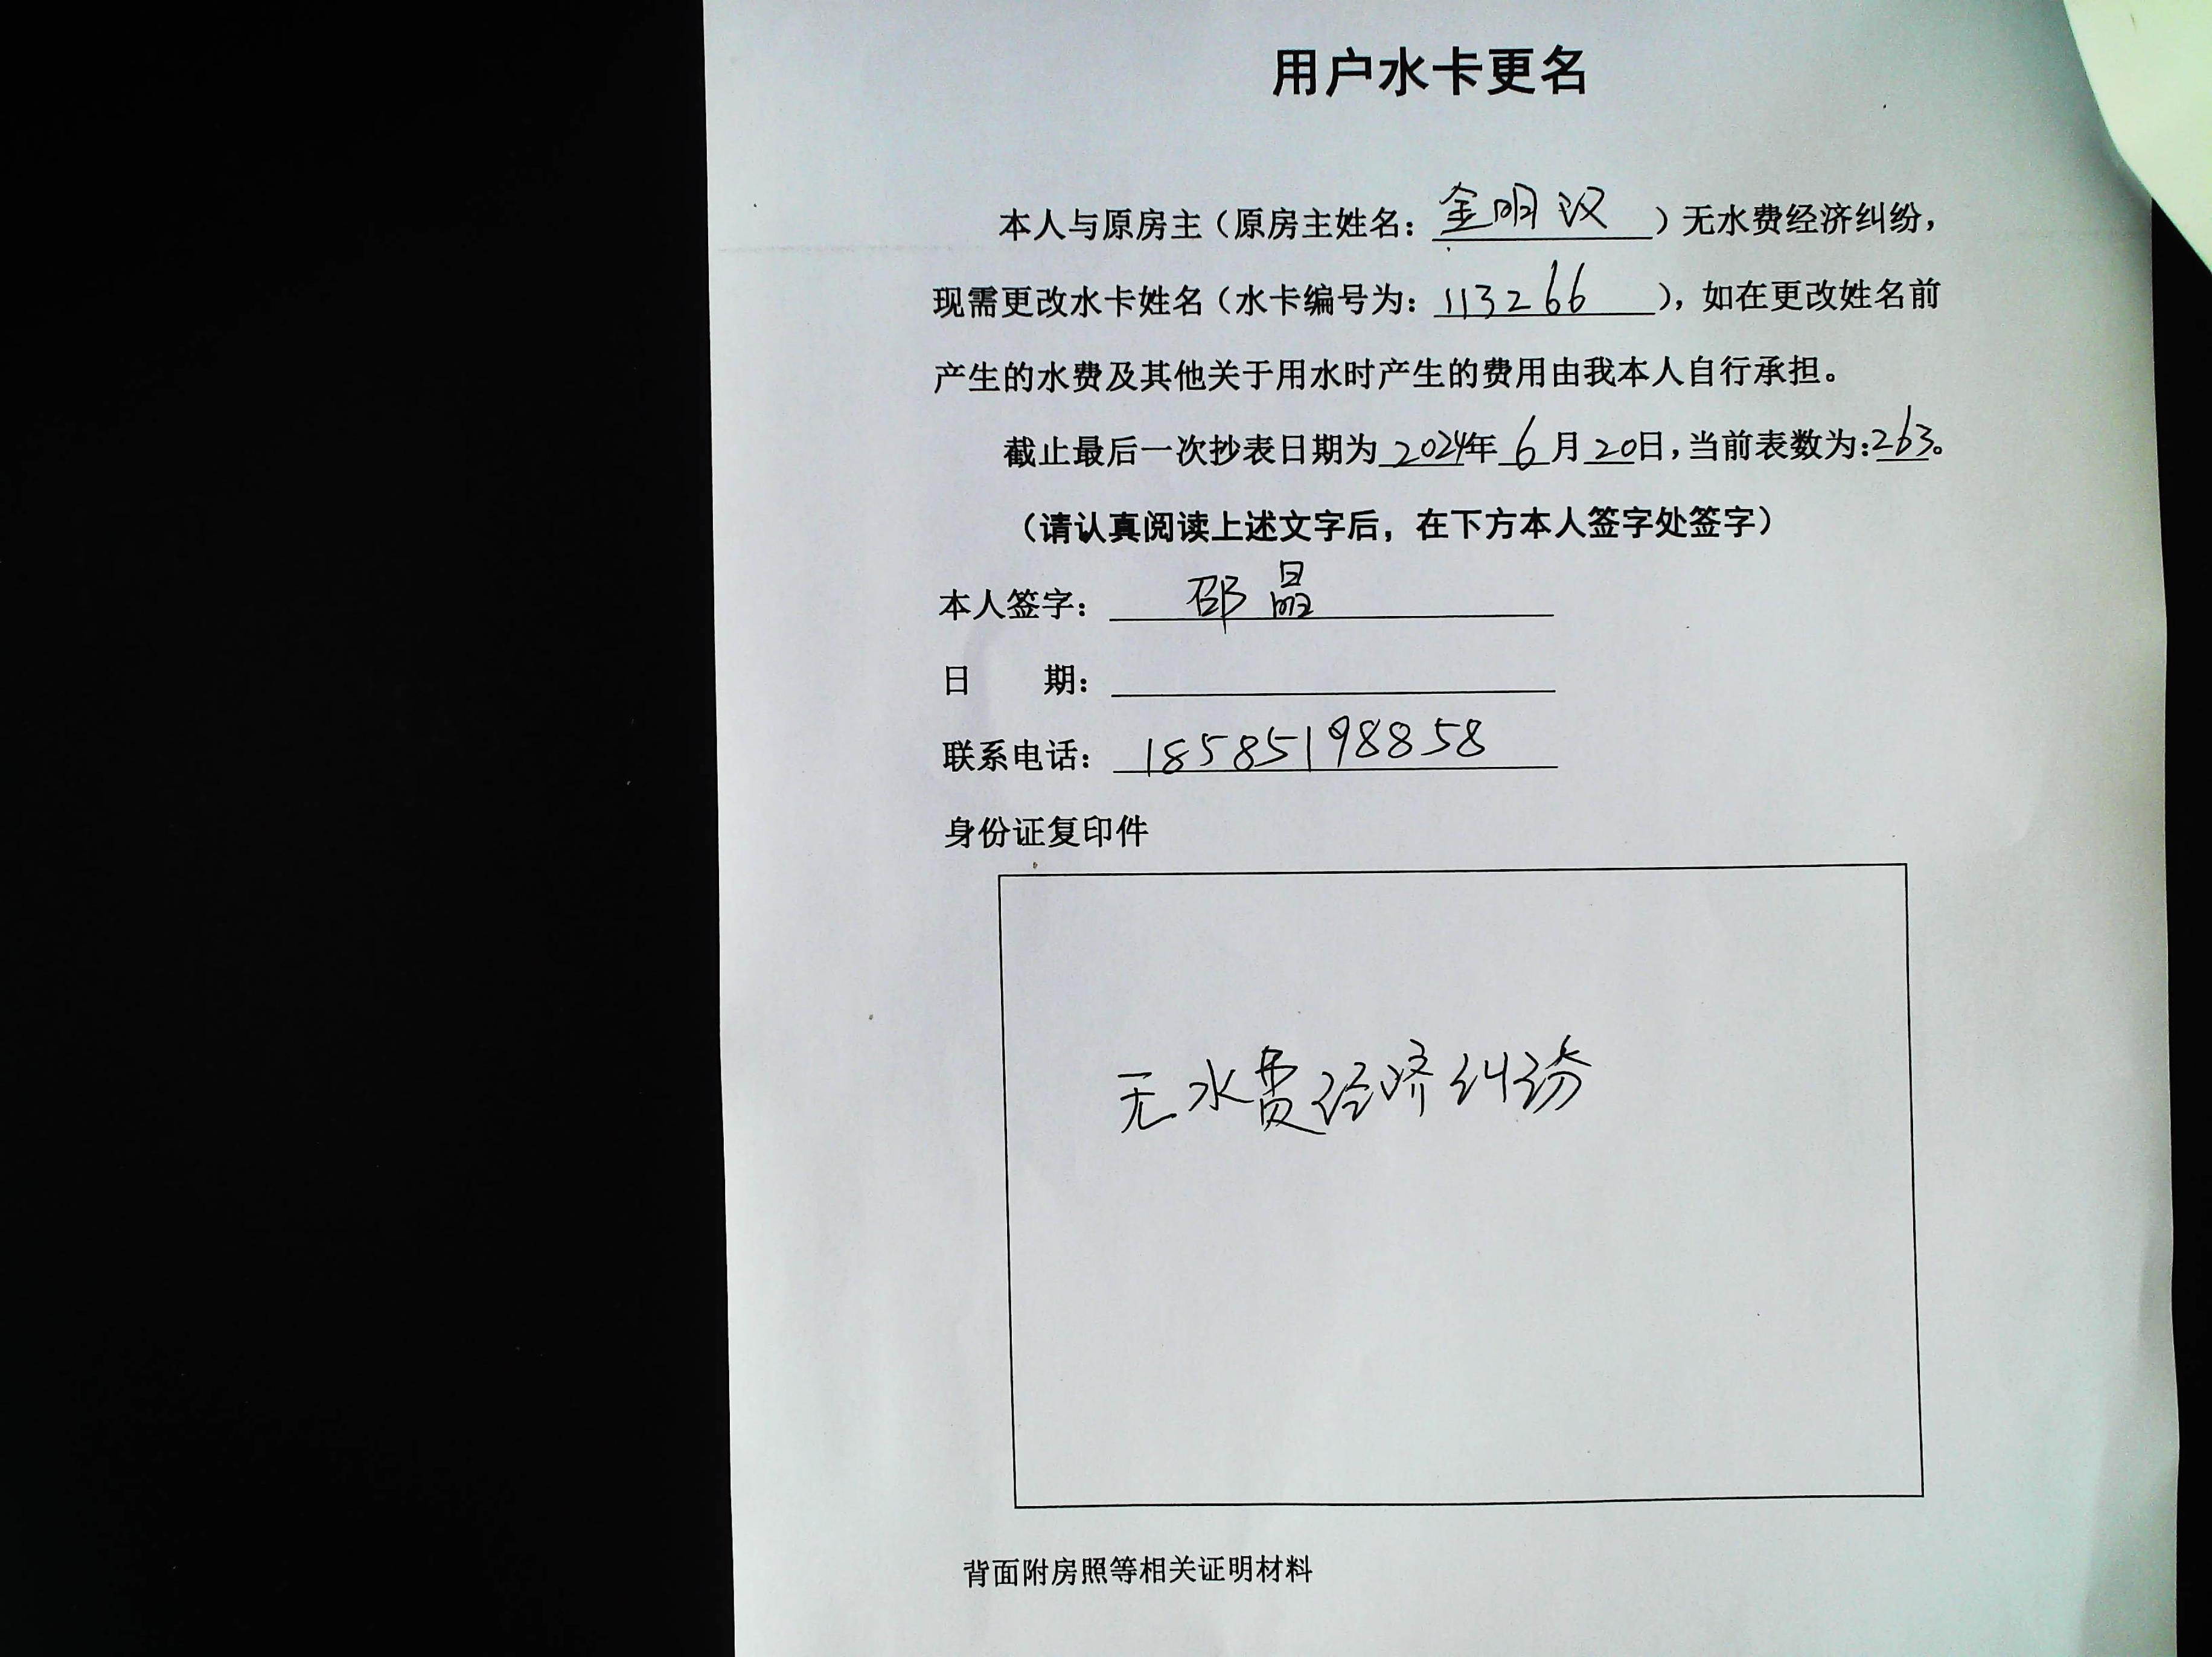 用户水卡更名
本人与原房主（原房主姓名：金明汉）无水费经济纠纷，
现需更改水卡姓名（水卡编号为：113266），如在更改姓名前
产生的水费及其他关于用水时产生的费用由我本人自行承担。
截止最后一次抄表日期为2024年6月20日，当前表数为：263。
（请认真阅读上述文字后，在下方本人签字处签字）
本人签字：邵晶
日 期：
联系电话：18585198858
身份证复印件
无水费经济纠纷
背面附房照等相关证明材料